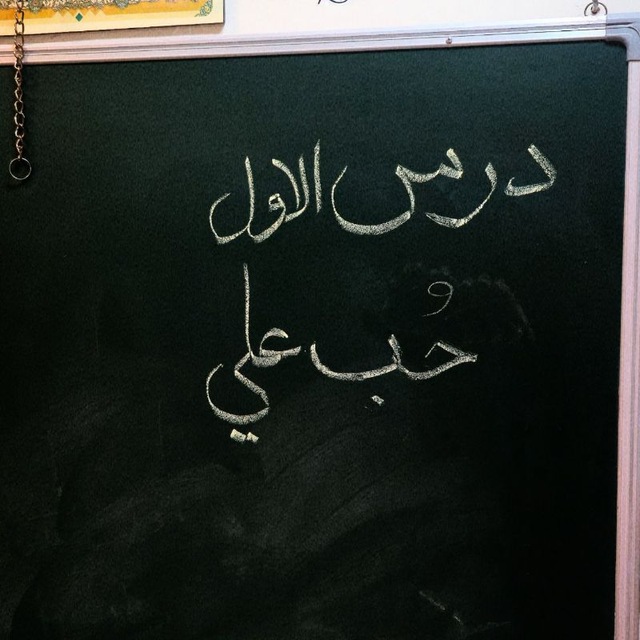 درس الاول
حُب علي